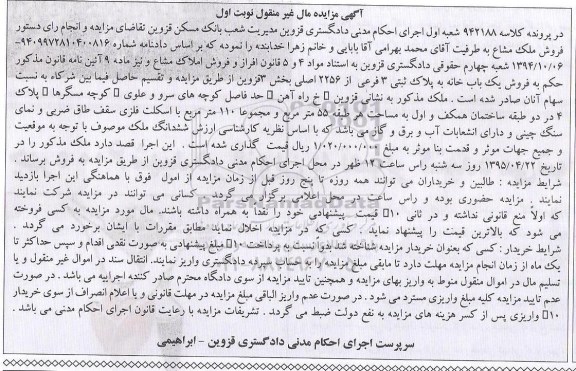 آگهی مزایده مال غیر منقول نوبت اول
در پرونده کلاسه ۹۴۲۱۸۸ شعبه اول اجرای احکام مدنی دادگستری قزوین مدیریت شعب بانک مسکن قزوین تقاضای مزایده و انجام رای دستور
فروش ملک مشاع به طرفیت آقای محمد بهرامی آقا بابایی و خانم زهرا خدابنده را نموده که بر اساس دادنامه شماره ۹۴۰۹۹۷۲۸۱۰۴۰۰۸۱۶-
۱۳۹۴/۱۰/۰۶ شعبه چهارم حقوقی دادگستری قزوین به استناد مواد ۴ و ۵ قانون افراز و فروش املاک مشاع و نیز ماده ۹ آئین نامه قانون مذکور
حکم به فروش یک باب خانه به پلاک ثبتی ۳ فرعی از ۲۲۵۶ اصلی بخش ۳ قزوین از طریق مزایده و تقسیم حاصل فیما بین شرکاء به نسبت
سهام آنان صادر شده است . ملک مذکور به نشانی قزوین خ راه آهن حد فاصل کوچه های سرو و علوی کوچه مسگرها پلاک
۴ در دو طبقه ساختمان همکف و اول به مساحت هر طبقه ۵۵ متر مربع و مجموعا ۱۱۰ متر مربع با اسکلت فلزی سقف طاق ضربی و نمای
سنگ چینی و دارای انشعابات آب و برق و گاز می باشد که با اساس نظریه کارشناسی ارزش ششدانگ ملک موصوف با توجه به موقعیت
و جمیع جهات موثر و قدمت بنا موثر به مبلغ ۱/۰۲۰/۰۰۰/۰۰۰ ریال قیمت گذاری شده است . این اجرا قصد دارد ملک مذکور را در
تاریخ ۱۳۹۵/۰۴/۲۲ روز سه شنبه راس ساعت ۱۲ ظهر در محل اجرای احکام مدنی دادگستری قزوین از طریق مزایده به فروش برساند .
شرایط مزایده : طالبین و خریداران می توانند همه روزه تا پنج روز قبل از زمان مزایده از اموال فوق با هماهنگی این اجرا بازدید
نمایند . مزایده حضوری بوده و راس ساعت در محل اعلامی برگزار می گردد . کسانی می توانند در مزایده شرکت نمایند
که اولاً منع قانونی نداشته و در ثانی ۱۰ قیمت پیشنهادی خود را نقداً به همراه داشته باشند. مال مورد مزایده به کسی فروخته
می شود که بالاترین قیمت را پیشنهاد نماید . کسی که در مزایده اخلال نماید مطابق مقررات با ایشان برخورد می گردد .
شرایط خریدار : کسی که بعنوان خریدار مزایده شناخته شد بدواً نسبت به پرداخت ۱۰ مبلغ پیشنهادی به صورت نقدی اقدام و سپس حداکثر تا
یک ماه از زمان انجام مزایده مهلت دارد تا مابقی مبلغ مزایده را به حساب سپرده دادگستری واریز نمایند. انتقال سند در اموال غیر منقول و یا
تسلیم مال در اموال منقول منوط به واریز بهای مزایده و همچنین تایید مزایده از سوی دادگاه محترم صادر کننده اجراییه می باشد . در صورت
عدم تایید مزایده کلیه مبلغ واریزی مسترد می شود . در صورت عدم واریز الباقی مبلغ مزایده در مهلت قانونی و یا اعلام انصراف از سوی خریدار
۱۰ واریزی پس از کسر هزینه های مزایده به نفع دولت ضبط می گردد . تشریفات مزایده با رعایت قانون اجرای احکام مدنی می باشد .
سرپرست اجرای احکام مدنی دادگستری قزوین - ابراهیمی